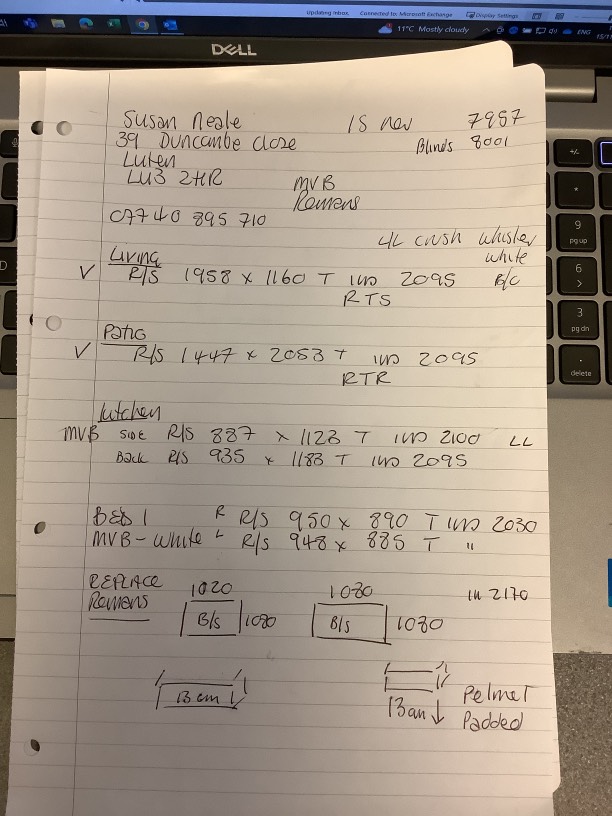 Updating Inbox. Connected to: Microsoft Exchange Display Settings
11°C Mostly cloudy ENG
DELL
Susan Neale 15 Nov 7957
39 Duncombe Close Blinds 8001
Luton
LU3 2HR MVB
Romans
07740 895 710
LL crush whisper
white
Living
✓ R/S 1958 x 1160 T IWD 2095 B/C
RTS
Patio
✓ R/S 1447 x 2053 T IWD 2095
RTR
Kitchen
MVB SIDE R/S 887 x 1123 T IWD 2100 LL
Back R/S 935 x 1183 T IWD 2095
BED 1 R R/S 950 x 890 T IWD 2030
MVB - White L R/S 948 x 885 T "
REPLACE 1020 1080 IH 2170
Romans B/s 1080 B/s 1080
13cm
13cm ↓ Pelmet
Padded
+/-
*
9
pg up
6
>
3
pg dn
.
delete
D